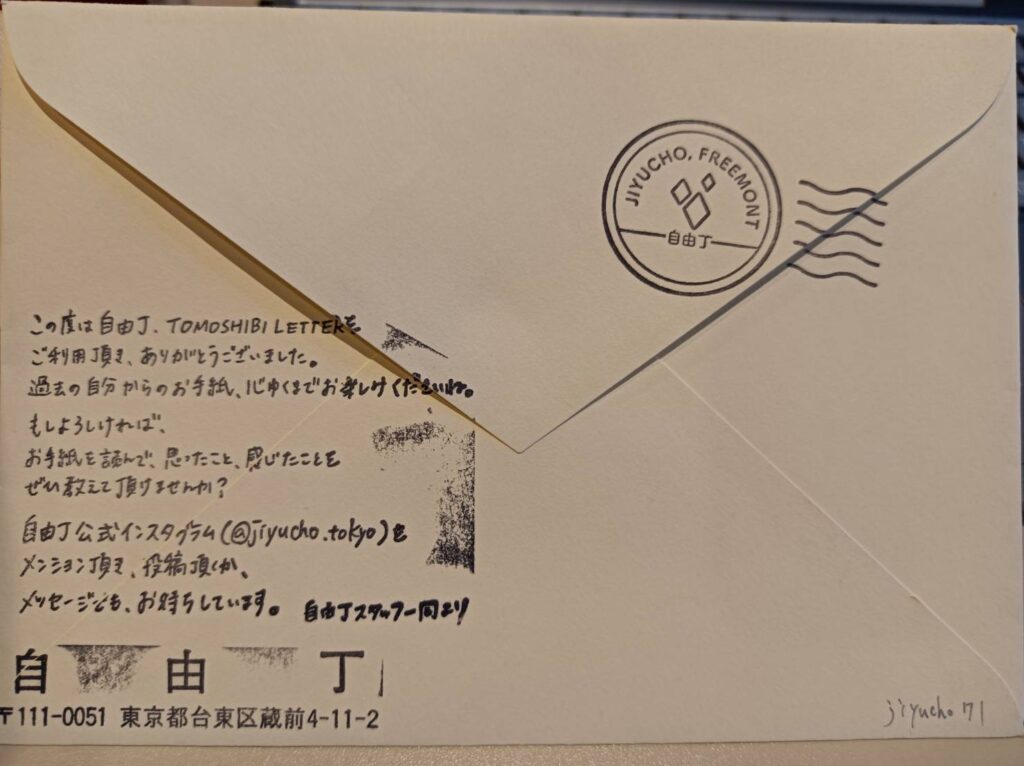 JIYUCHO, FREEMONT
自由丁
この度は自由丁、TOMOSHIBI LETTERを
ご利用頂き、ありがとうございました。
過去の自分からのお手紙、心ゆくまでお楽しみくださいね。
もしよろしければ、
お手紙を読んで、思ったこと、感じたことを
ぜひ教えて頂けませんか?
自由丁公式インスタグラム(@jiyucho.tokyo)を
メンション頂き、投稿頂くか、
メッセージでも、お待ちしています。 自由丁スタッフ一同より
自由丁
〒111-0051 東京都台東区蔵前4-11-2
jiyucho 71